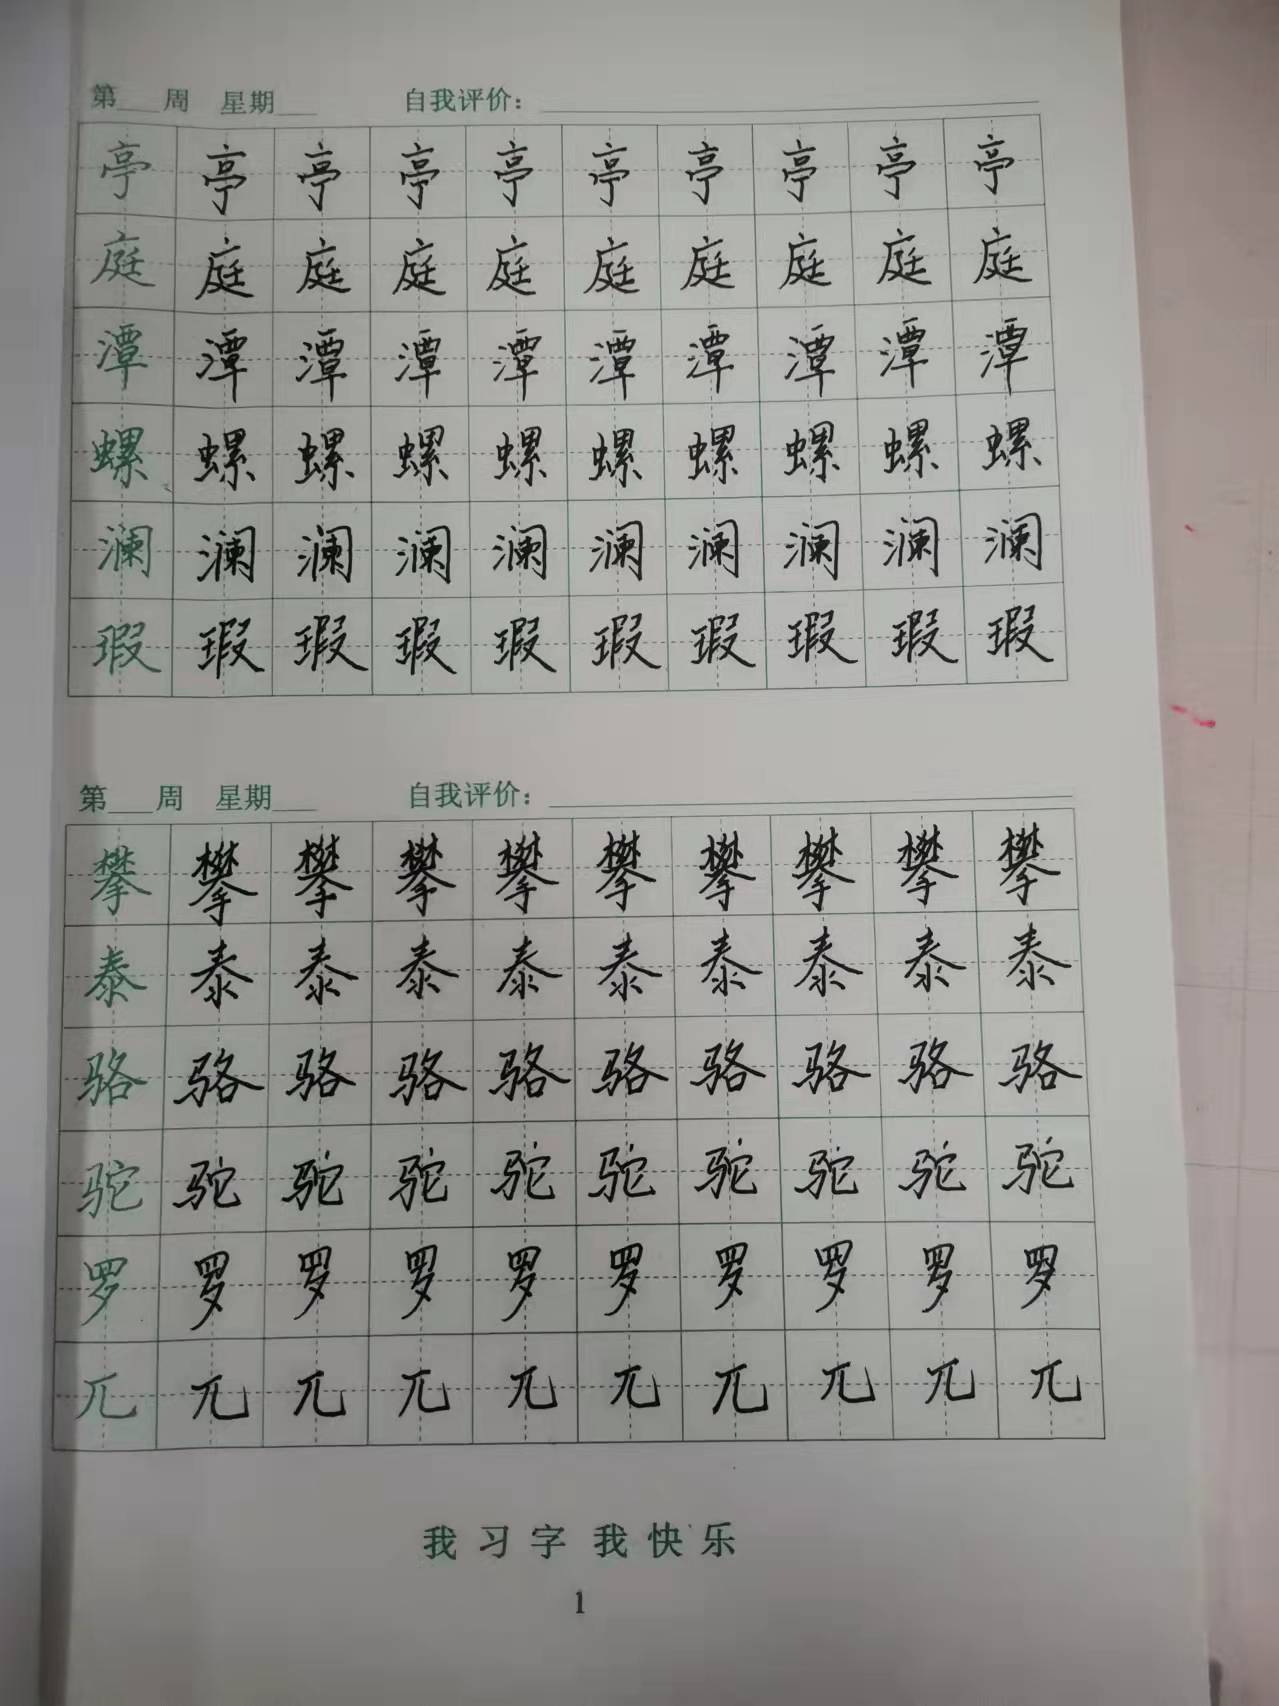 第___周 星期___ 自我评价：___
亭亭亭亭亭亭亭亭亭亭
庭庭庭庭庭庭庭庭庭庭
潭潭潭潭潭潭潭潭潭潭
螺螺螺螺螺螺螺螺螺螺
澜澜澜澜澜澜澜澜澜澜
瑕瑕瑕瑕瑕瑕瑕瑕瑕瑕
第___周 星期___ 自我评价：___
攀攀攀攀攀攀攀攀攀攀
泰泰泰泰泰泰泰泰泰泰
骆骆骆骆骆骆骆骆骆骆
驼驼驼驼驼驼驼驼驼驼
罗罗罗罗罗罗罗罗罗罗
兀兀兀兀兀兀兀兀兀兀
我习字我快乐
1